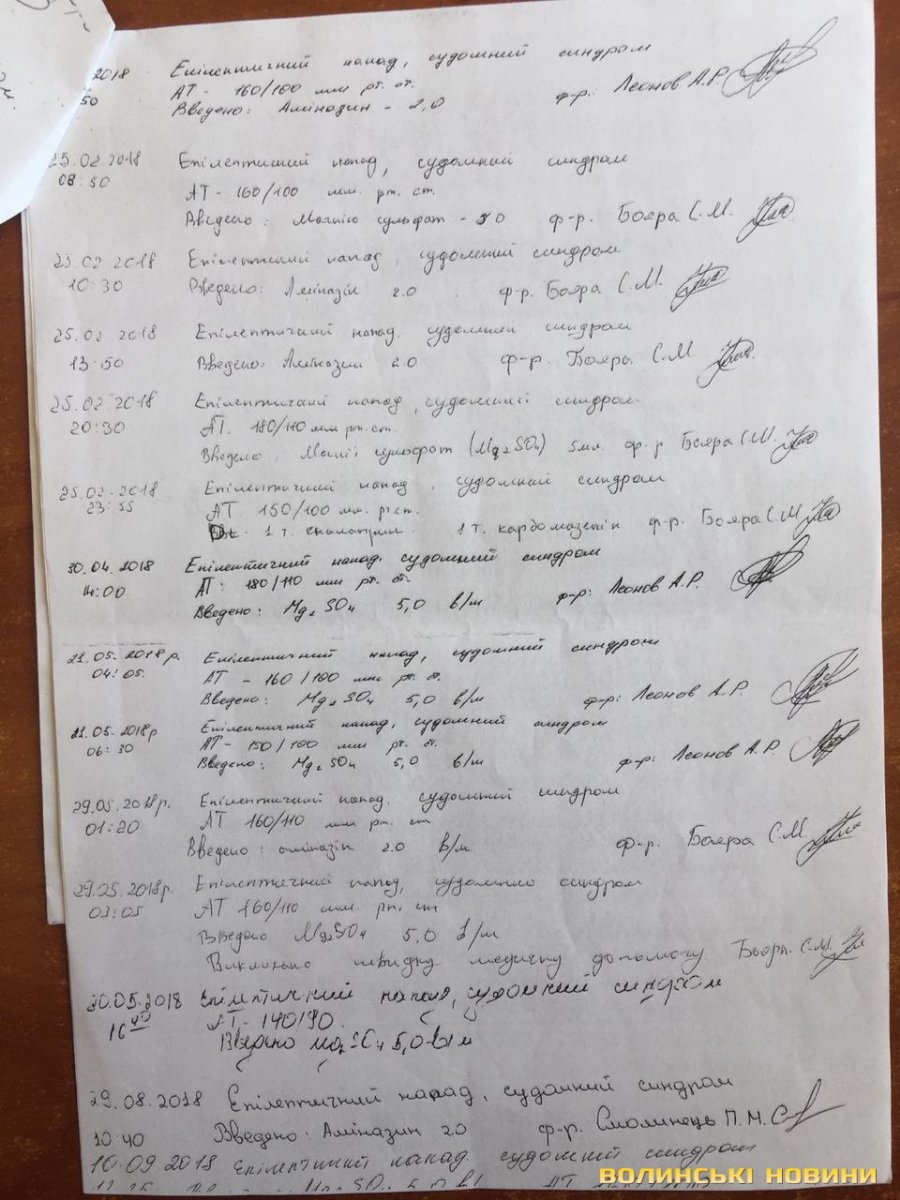 2018 Епілептичний напад, судомний синдром
50 АТ - 160/100 мм рт. ст.
Введено: Аміназин - 2,0 ф-р: Леонов А.Р.
25.02.2018 Епілептичний напад, судомний синдром
08:50 АТ - 160/100 мм. рт. ст.
Введено: Магнію сульфат - 5.0 ф-р. Бояра С.М.
25.02.2018 Епілептичний напад, судомний синдром
10:30 Введено: Аміназін 2.0 ф-р. Бояра С.М.
25.02.2018 Епілептичний напад. судомний синдром
13:50 Введено: Аміназин 2.0 ф-р. Бояра С.М
25.02.2018 Епілептичний напад, судомний синдром
20:30 АТ. 180/110 мм рт. ст.
Введено. сульфат (Mg2SO4) 5мл ф.р Бояра С.М.
25.02.2018 Епілептичний напад, судомний синдром
23:55 АТ 150/100 мм. рт. ст.
1 т. 1 т. кардомазепін ф-р. Бояра С.М
30.04.2018 Епілептичний напад. судомний синдром
14:00 АТ: 180/110 мм рт. ст.
Введено: Mg2SO4 5,0 в/м ф-р: Леонов А.Р.
21.05.2018 р. Епілептичний напад, судомний синдром
04:05 АТ - 160/100 мм рт. ст.
Введено: Mg2SO4 5,0 в/м ф-р: Леонов А.Р.
21.05.2018 р Епілептичний напад, судомний синдром
06:30 АТ - 150/100 мм рт. ст.
Введено: Mg2SO4 5,0 в/м ф-р. Леонов А.Р.
29.05.2018 р. Епілептичний напад. судомний синдром
01:20 АТ 160/110 мм рт. ст
Введено: аміназін 2.0 в/м ф-р. Бояра С.М.
29.05.2018 р. Епілептичний напад, судомний синдром
03:05 АТ 160/110 мм. рт. ст
Введено Mg2SO4 5,0 в/м
Викликано швидку медичну допомогу Бояра С.М.
30.05.2018 Епілептичний напад, судомний синдром
16 45 АТ - 140/90.
Введено Mg2SO4 5,0 в/м
29.08.2018 Епілептичний напад, судомний синдром
10:40 Введено: Аміназин 2.0 ф-р. Смолинець П.М.
10.09.2018 Епілептичний напад. судомний синдром
ВОЛИНСЬКІ НОВИНИ